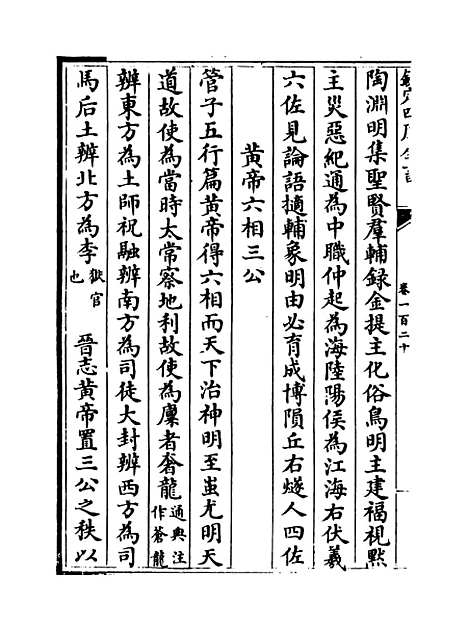 欽定四庫全書
卷一百二十
陶淵明集聖賢羣輔録金提主化俗鳥明主建福視黙
主災惡紀通為中職仲起為海陸陽侯為江海右伏羲
六佐見論語擿輔象明由必育成博隕丘右燧人四佐
黄帝六相三公
管子五行篇黄帝得六相而天下治神明至蚩尤明天
道故使為當時太常察地利故使為廩者奢龍通典注作蒼龍
辨東方為土師祝融辨南方為司徒大封辨西方為司
馬后土辨北方為李獄官也 晉志黄帝置三公之秩以